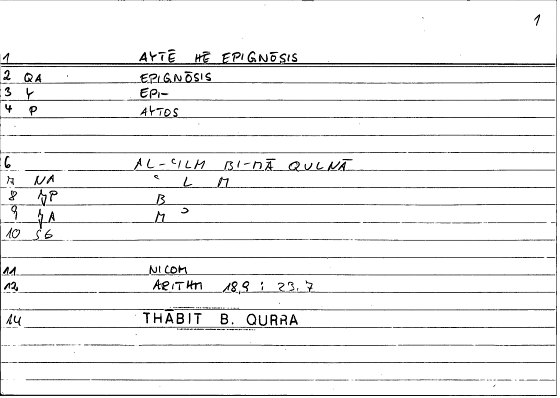 1
1 AYTĒ HĒ EPIGNŌSIS
2 QA EPIGNŌSIS
3 Y EPI-
4 P AYTOS
6 AL-ʿILM BI-MĀ QULNĀ
7 NA ʿ L M
8 P B
9 A M ʾ
10 SG
11 NICOM
12 ARITHM 18,9 : 23,7
14 THĀBIT B. QURRA